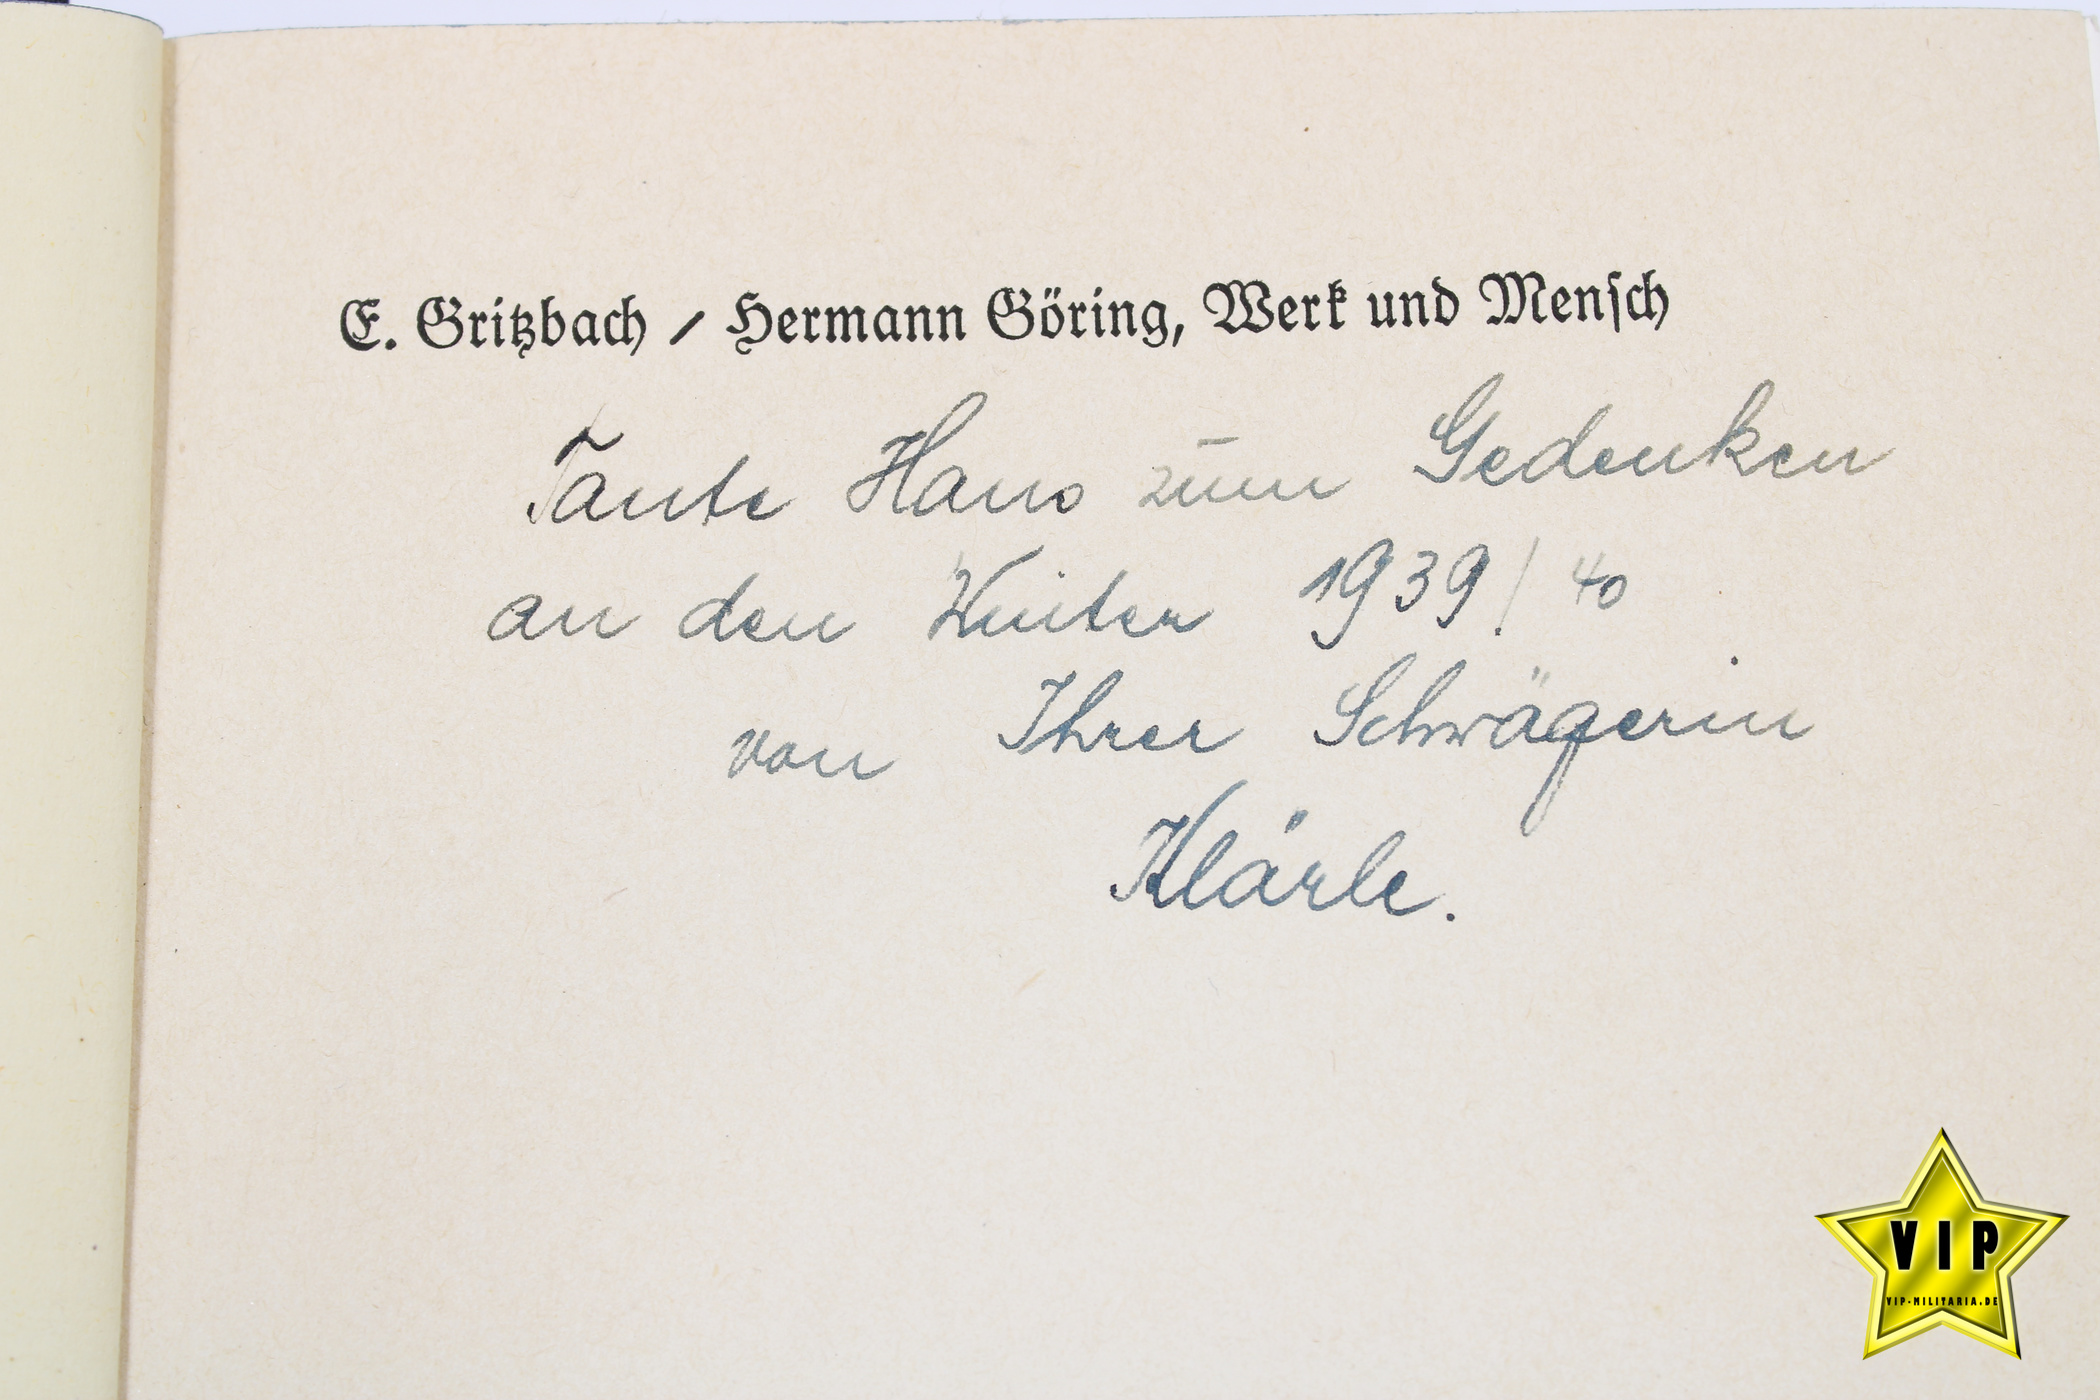 E. Gritzbach / Hermann Göring, Werk und Mensch
Tante Hans zum Gedenken
an den Winter 1939/40
von Ihrer Schwägerin
Klärle.
VIP
VIP-MILITARIA.DE